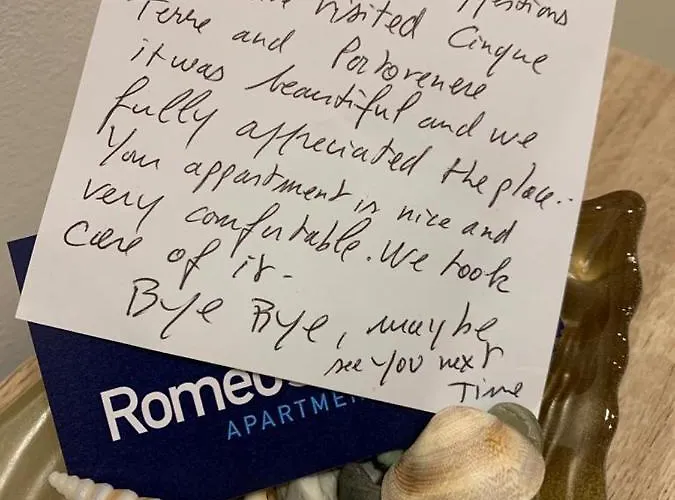 visited Cinque
Terre and Portovenere
it was beautiful and we
fully appreciated the place..
Your appartment is nice and
very comfortable. We took
care of it.
Bye Bye, maybe
see you next
Time
Romeo
APARTME